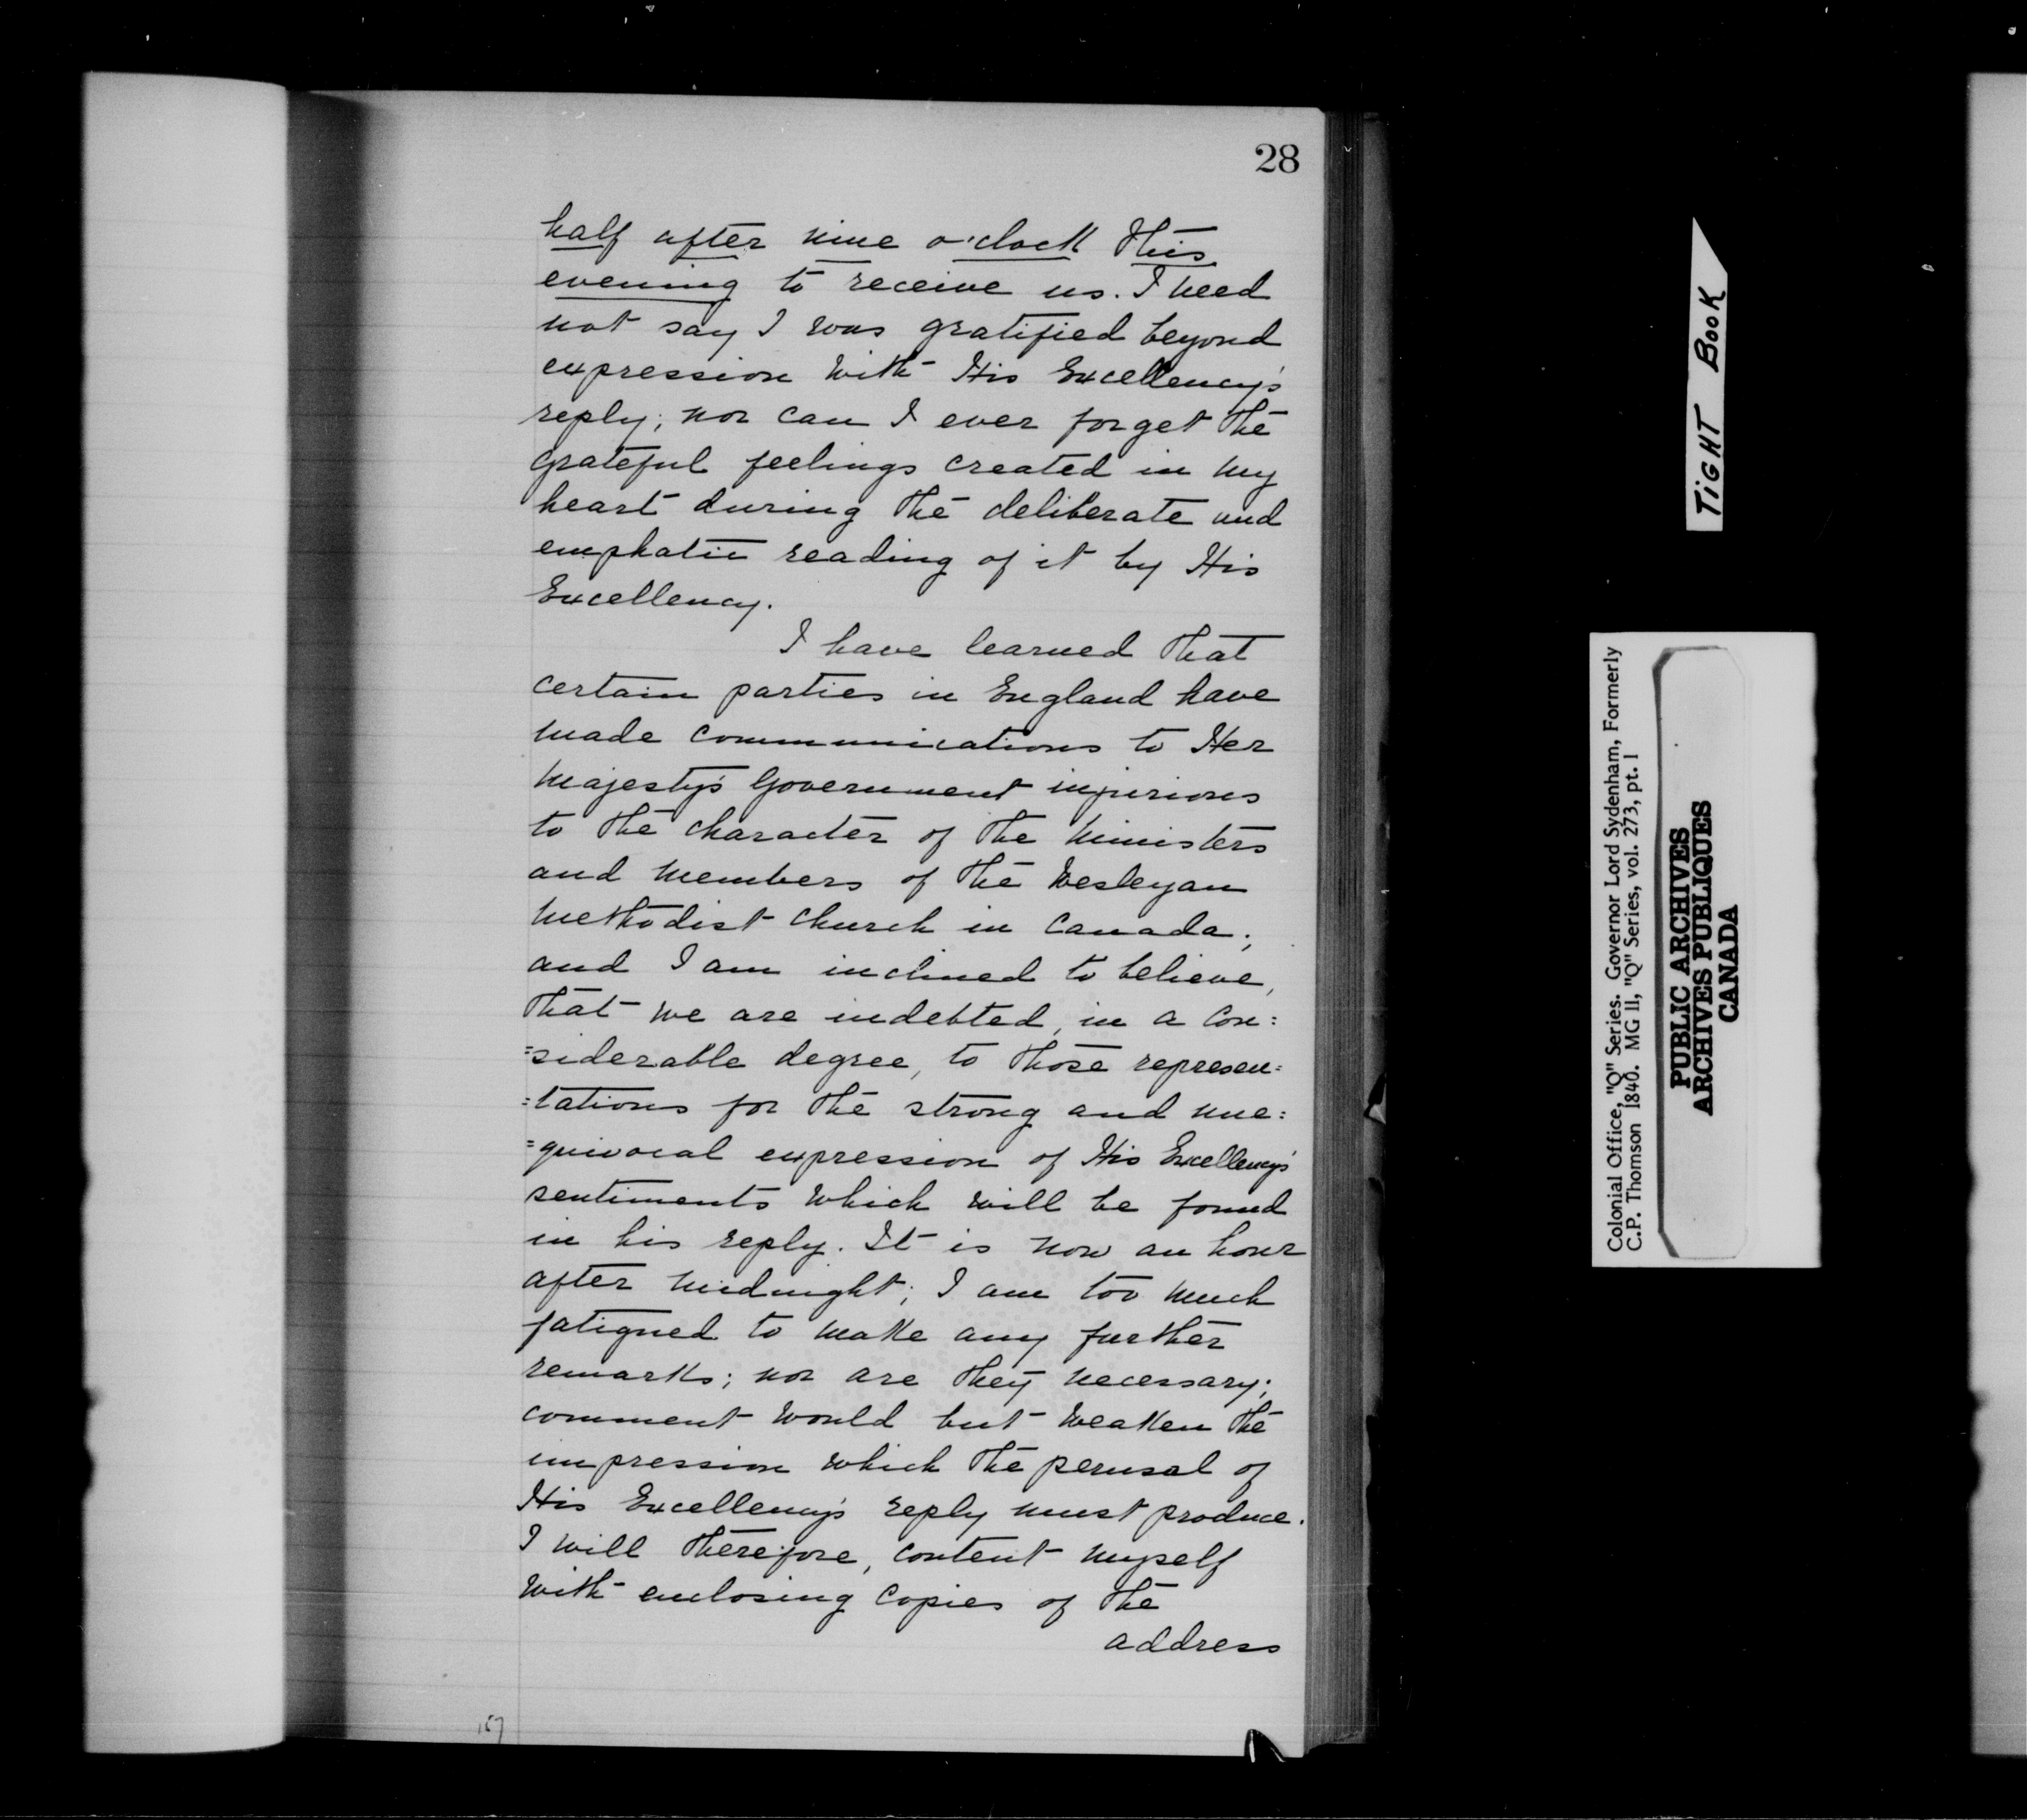 28
half after nine o'clock this
evening to receive us. I need
not say I was gratified beyond
expression with His Excellency's
reply; nor can I ever forget the
grateful feelings created in my
heart during the deliberate and
emphatic reading of it by His
Excellency.
I have learned that
certain parties in England have
made communications to Her
Majesty's Government injurious
to the character of the Ministers
and Members of the Wesleyan
Methodist Church in Canada;
and I am inclined to believe,
that we are indebted, in a con=
=siderable degree, to those represen=
=tations for the strong and une=
=quivocal expression of His Excellency's
sentiments which will be found
in his reply. It is now an hour
after midnight; I am too much
fatigued to make any further
remarks; nor are they necessary;
comment would but weaken the
impression which the perusal of
His Excellency's reply must produce.
I will therefore, content myself
with enclosing copies of the
address
157
TIGHT BOOK
Colonial Office, "Q" Series. Governor Lord Sydenham, Formerly
C.P. Thomson 1840. MG 11, "Q" Series, vol. 273, pt. 1
PUBLIC ARCHIVES
ARCHIVES PUBLIQUES
CANADA